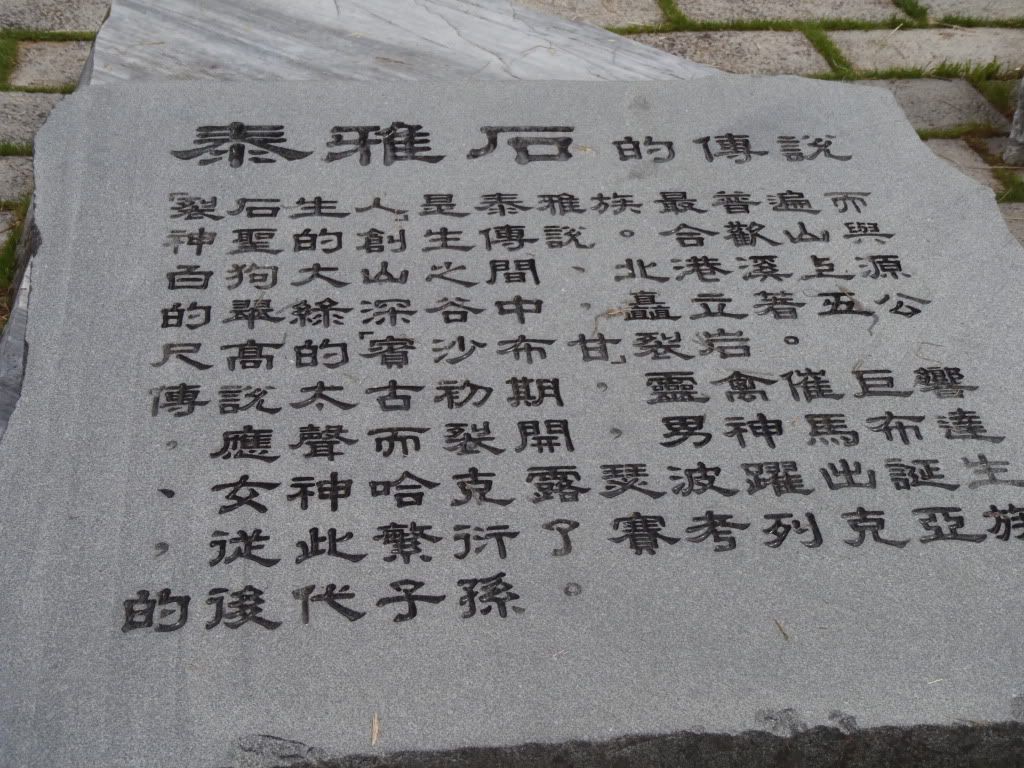 泰雅石的傳說
「裂石生人」是泰雅族最普遍而
神聖的創生傳說。合歡山與
白狗大山之間、北港溪上源
的翠綠深谷中，矗立著五公
尺高的「賓沙布甘」裂岩。
傳說太古初期，靈禽催巨響
，應聲而裂開，男神馬布達
、女神哈克露瑟波躍出誕生
，從此繁衍了賽考列克亞族
的後代子孫。